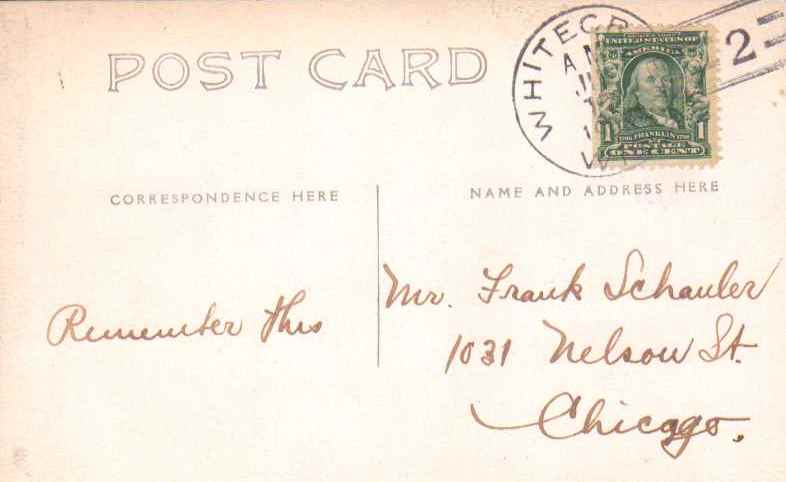 POST CARD
WHITECR
2
AM
UNITED STATES OF
AMERICA
1
FRANKLIN
1
POSTAGE
ONE CENT
CORRESPONDENCE HERE
NAME AND ADDRESS HERE
Remember this
Mr. Frank Schauler
1031 Nelson St.
Chicago.